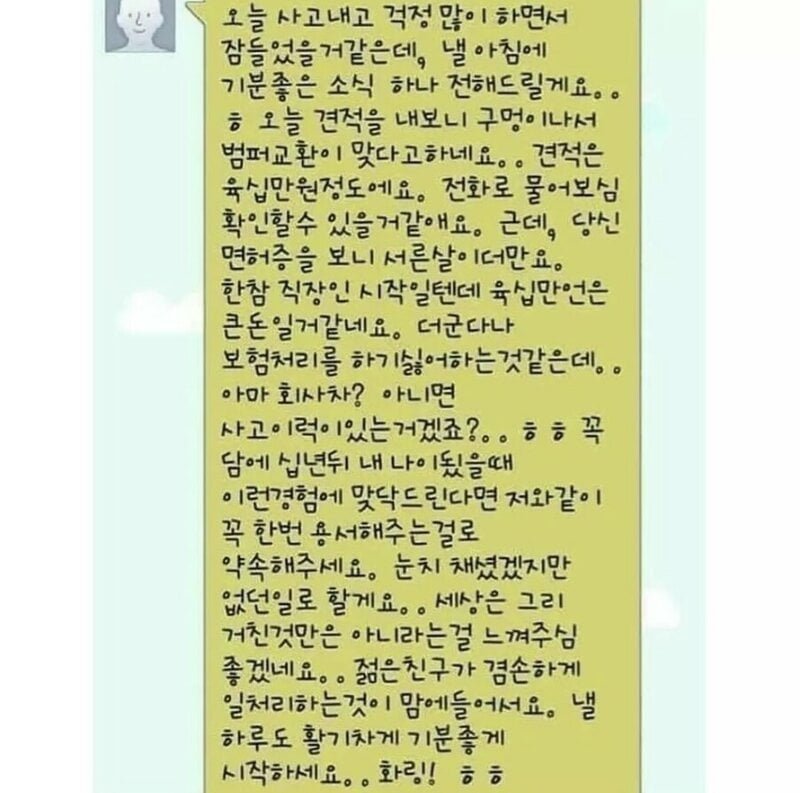 오늘 사고내고 걱정 많이 하면서
잠들었을거같은데, 낼 아침에
기분좋은 소식 하나 전해드릴게요. .
ㅎ 오늘 견적을 내보니 구멍이나서
범퍼교환이 맞다고하네요. . 견적은
육십만원정도에요. 전화로 물어보심
확인할수 있을거같애요. 근데, 당신
면허증을 보니 서른살이더만요.
한참 직장인 시작일텐데 육십만언은
큰돈일거같네요. 더군다나
보험처리를 하기싫어하는것같은데. .
아마 회사차? 아니면
사고이럭이있는거겠죠?. . ㅎ ㅎ 꼭
담에 십년뒤 내 나이됬을때
이런경험에 맞닥드린다면 저와같이
꼭 한번 용서해주는걸로
약속해주세요. 눈치 채셨겠지만
없던일로 할게요. . 세상은 그리
거친것만은 아니라는걸 느껴주심
좋겠네요. . 젊은친구가 겸손하게
일처리하는것이 맘에들어서요. 낼
하루도 활기차게 기분좋게
시작하세요. . 화링! ㅎ ㅎ